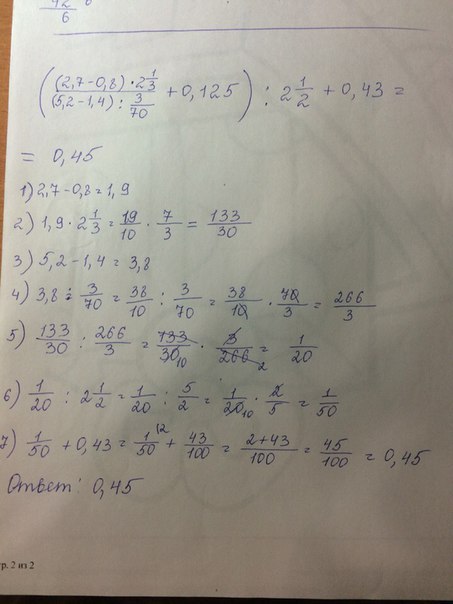 42/6
((2,7-0,8)·2 1/3 / (5,2-1,4):3/70 + 0,125) : 2 1/2 + 0,43 =
= 0,45
1) 2,7-0,8=1,9
2) 1,9·2 1/3 = 19/10 · 7/3 = 133/30
3) 5,2-1,4=3,8
4) 3,8 : 3/70 = 38/10 : 3/70 = 38/10 · 70/3 = 266/3
5) 133/30 : 266/3 = 133/30 10 · 3/266 2 = 1/20
6) 1/20 : 2 1/2 = 1/20 : 5/2 = 1/20 10 · 2/5 = 1/50
7) 1/50 + 0,43 = 1/50 |2 + 43/100 = 2+43/100 = 45/100 = 0,45
Ответ: 0,45
р. 2 из 2